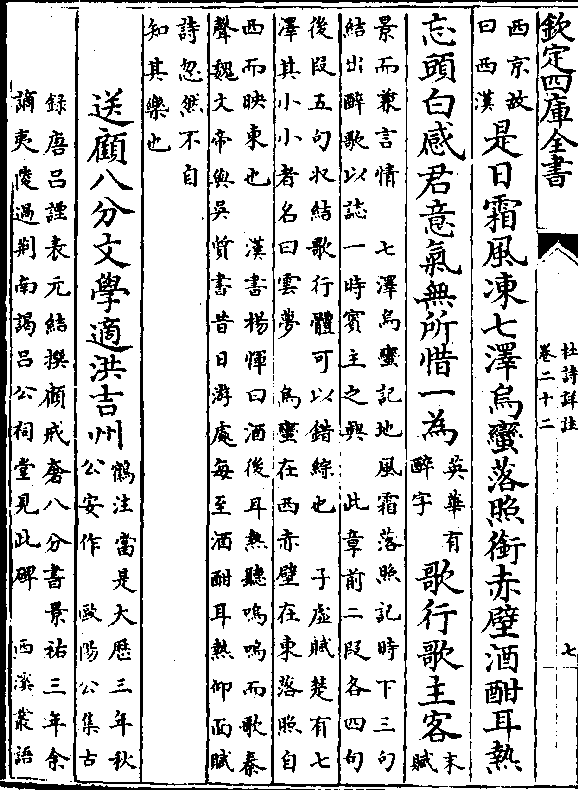 欽定四庫全書
杜詩詳註
卷二十二
七
西京故
曰西漢
是日霜風凍七澤烏蠻落照銜赤壁酒酣耳熱
忘頭白感君意氣無所惜一為
英華有
醉字
歌行歌主客
末
賦
景而兼言情 七澤烏蠻記地風霜落照記時下三句
結出醉歌以誌一時賓主之興 此章前二段各四句
後段五句収結歌行體可以錯綜也 子虛賦楚有七
澤其小小者名曰雲夢 烏蠻在西赤壁在東落照自
西而映東也 漢書楊惲曰酒後耳熱聽嗚嗚而歌秦
聲魏文帝與吳質書昔日游處每至酒酣耳熱仰面賦
詩忽然不自
知其樂也
送顧八分文學適洪吉州
鶴注當是大歷三年秋
公安作 歐陽公集古
錄唐呂諲表元結撰顧戒奢八分書景祐三年余
謫夷陵過荆南謁呂公祠堂見此碑 西溪叢語